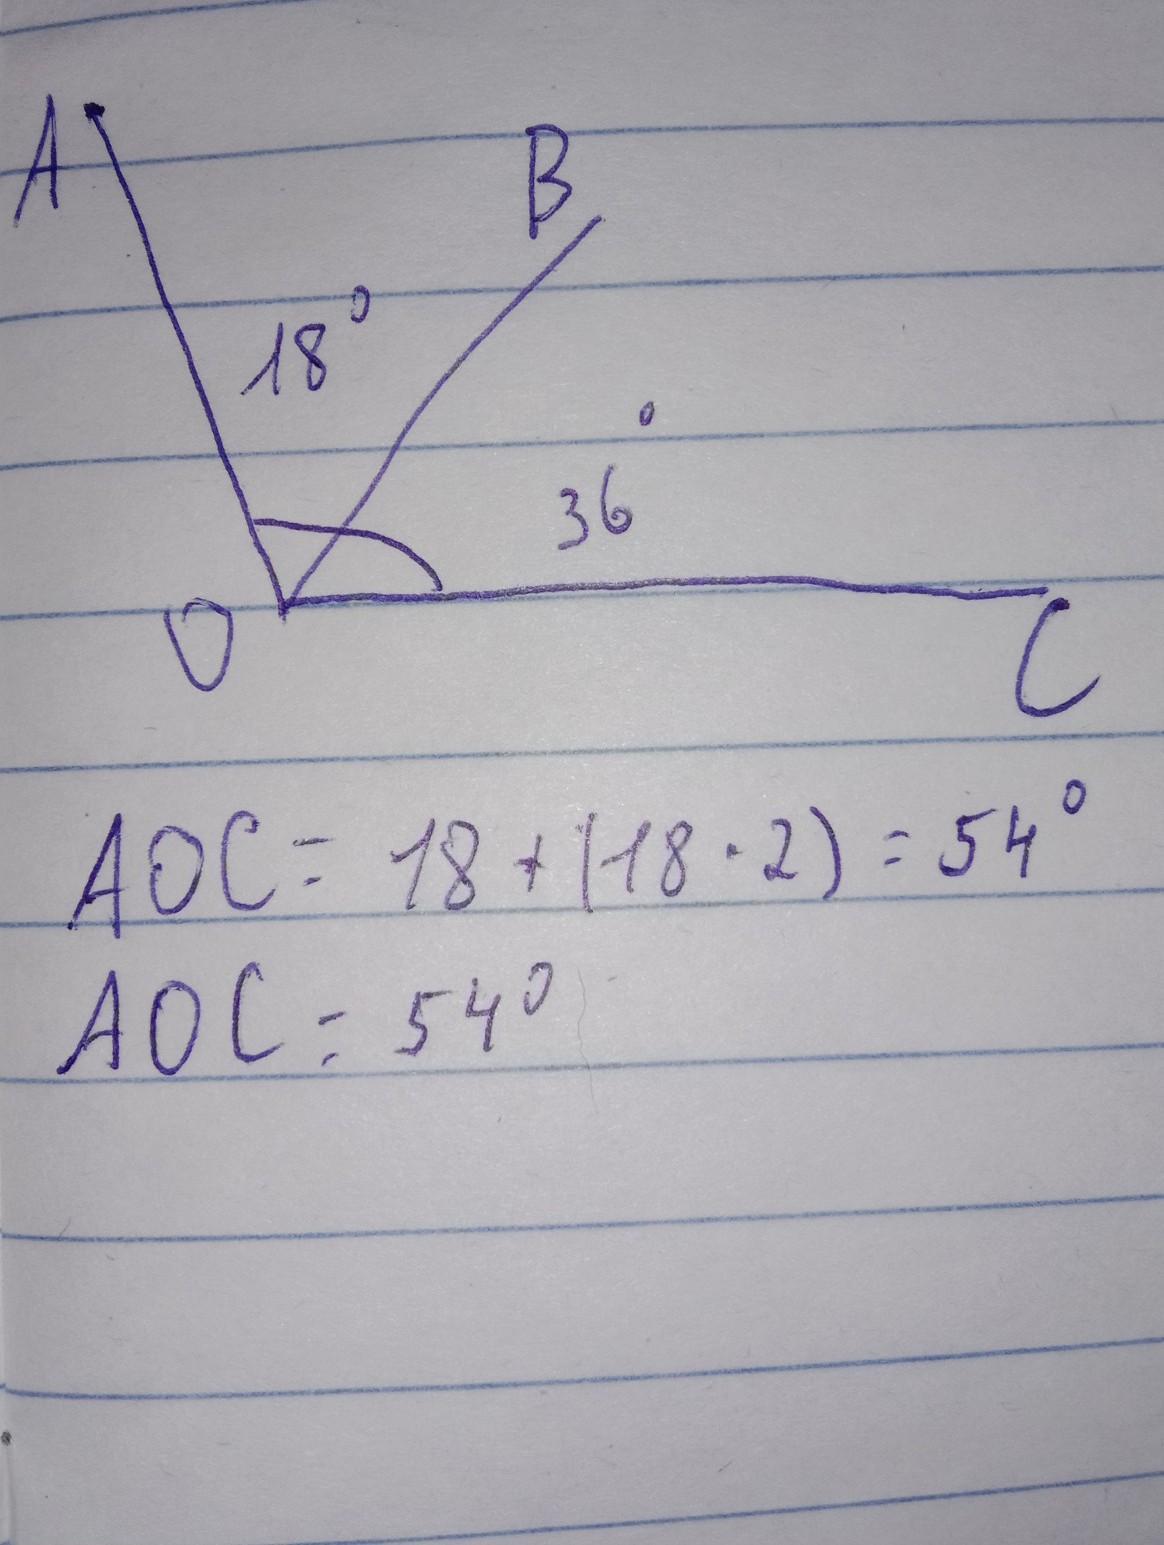 A
B
18°
36°
O
C
AOC = 18 + (18 · 2) = 54°
AOC = 54°